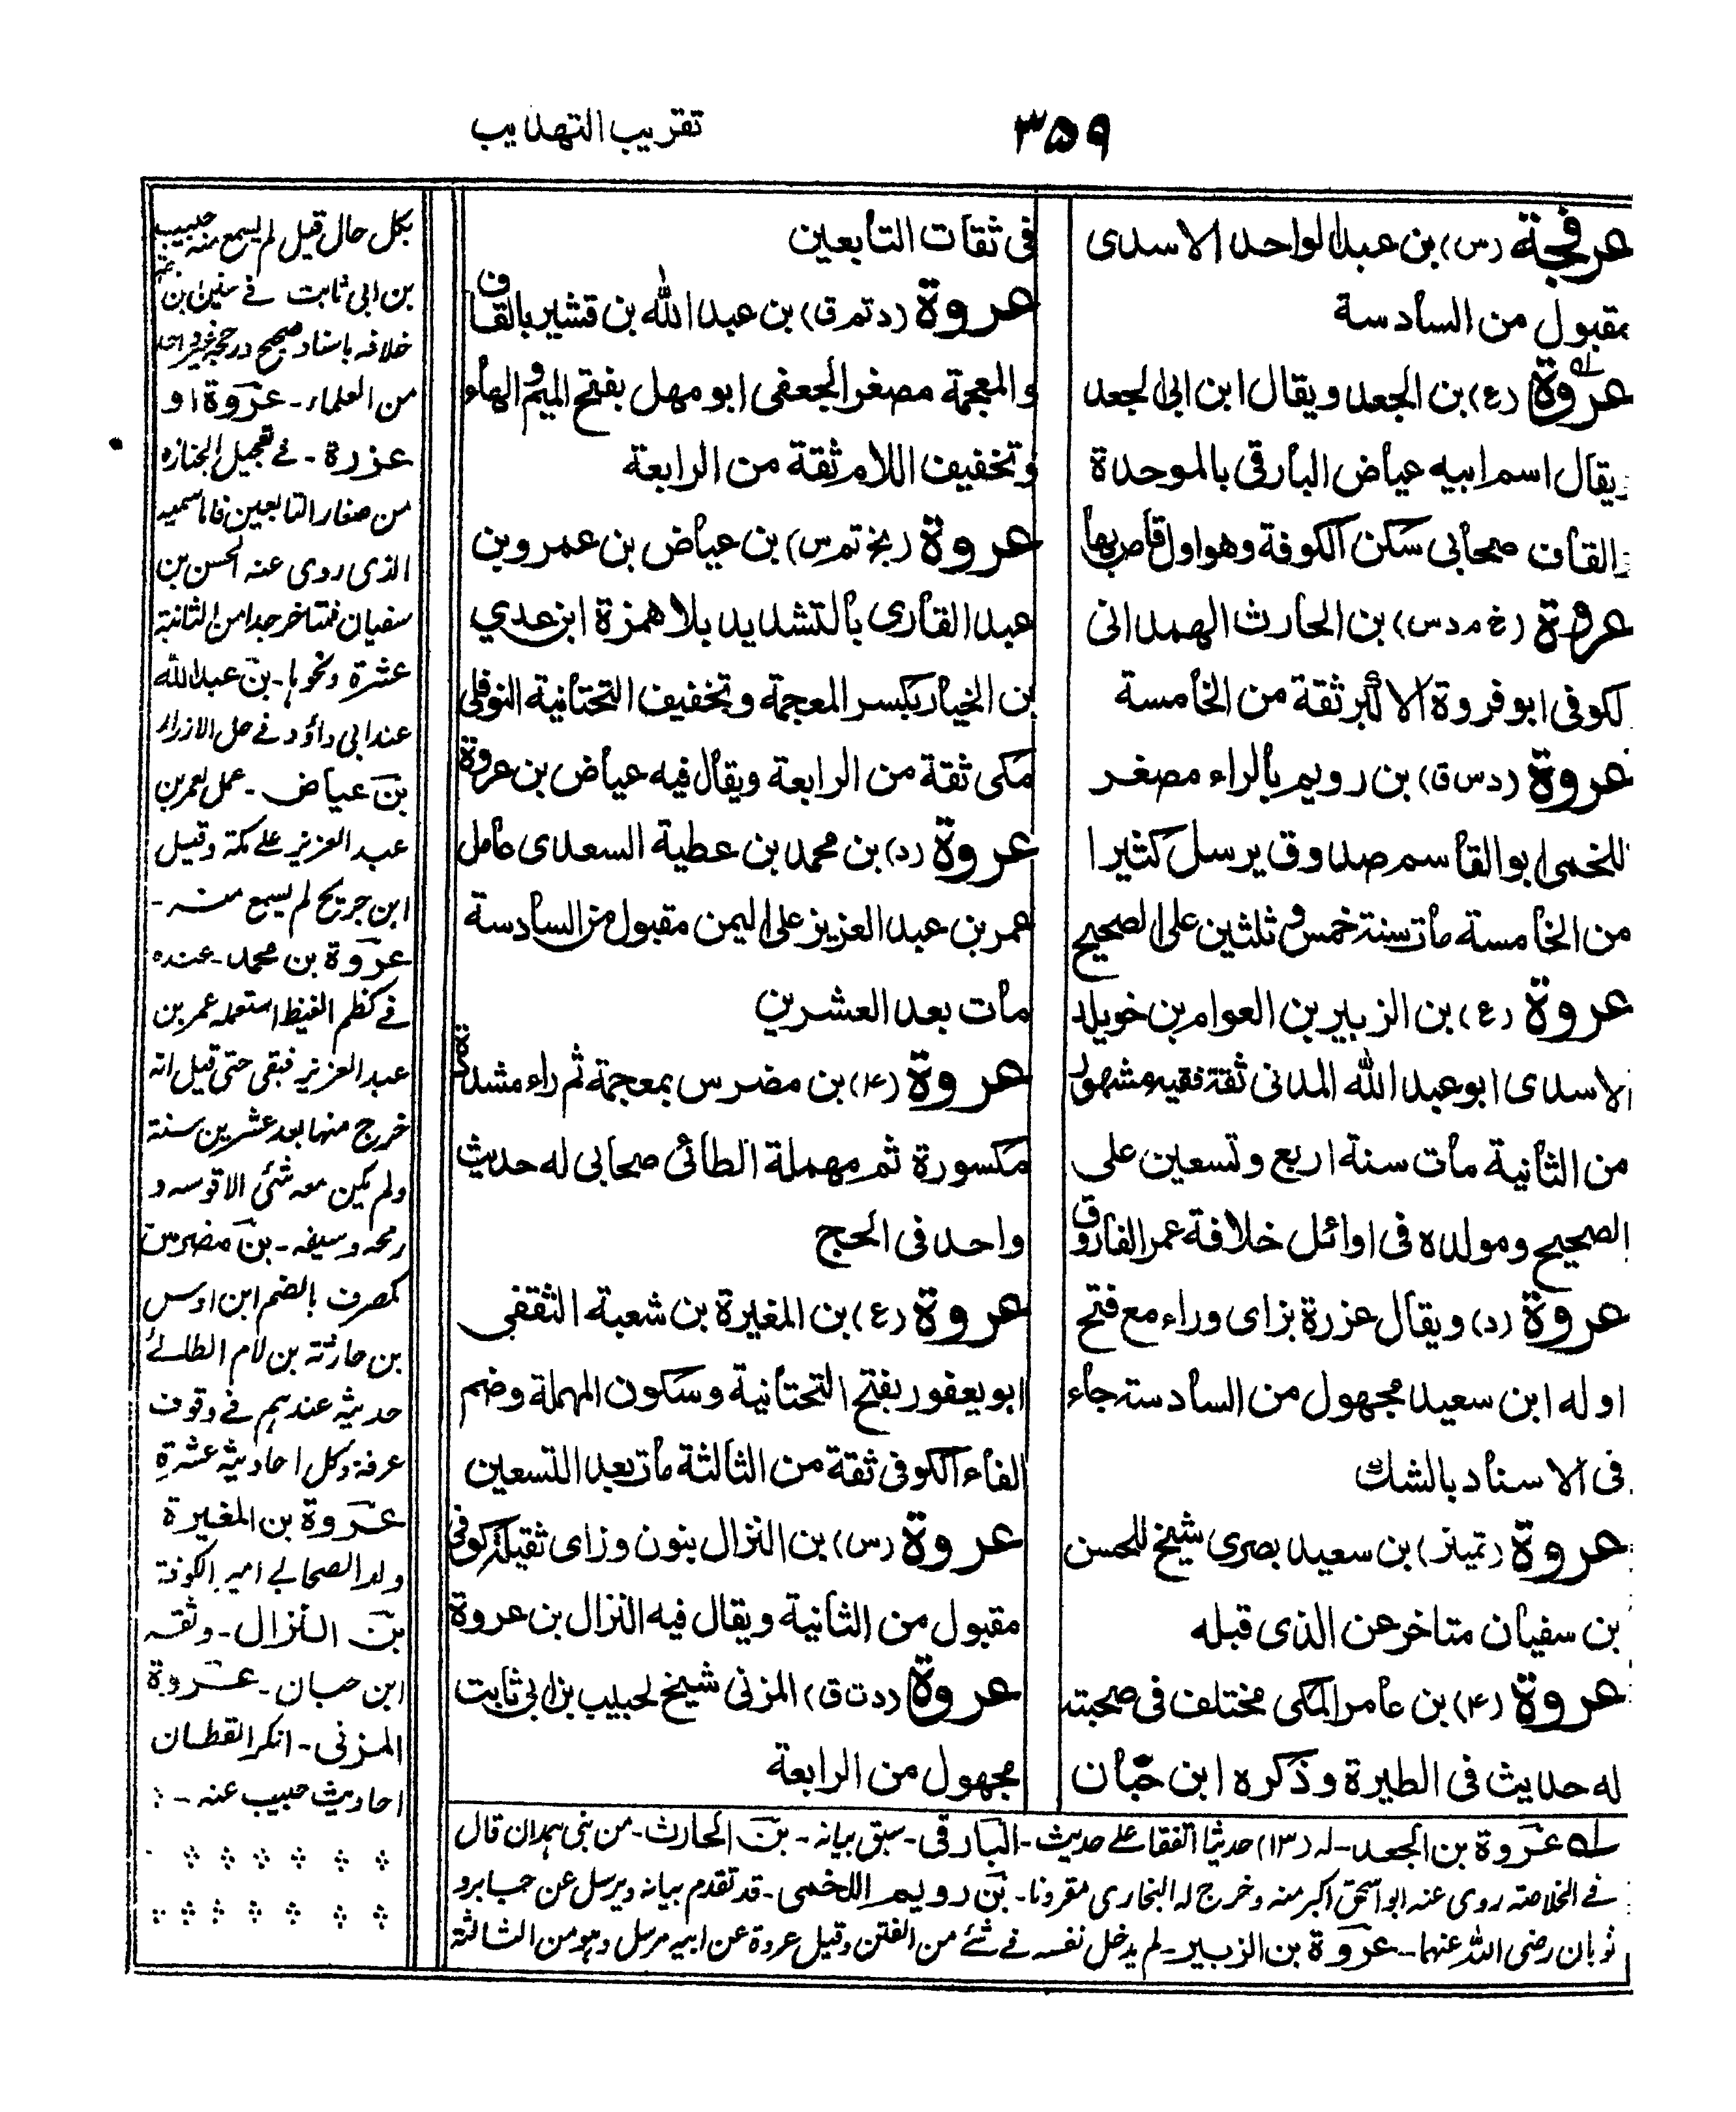 تقريب التهذيب
۳۵۹
عرفجة (س) بن عبد الواحد الاسدى
مقبول من السادسة
عروة (ع) بن الجعد ويقال ابن ابى الجعد
يقال اسم ابيه عياض البارقى بالموحدة
القاف صحابى سكن الكوفة وهو اول قاض بها
عروة (خ م د س) بن الحارث الهمدانى
لكوفى ابو فروة الاكبر ثقة من الخامسة
عروة (د س ق) بن رويم بالراء مصغر
للخمى ابو القاسم صدوق يرسل كثيرا
من الخامسة مات سنة خمس و ثلثين على الصحيح
عروة (ع) بن الزبير بن العوام بن خويلد
الاسدى ابو عبد الله المدنى ثقة فقيه مشهور
من الثانية مات سنة اربع وتسعين على
الصحيح ومولده فى اوائل خلافة عمر الفاروق
عروة (د) ويقال عزرة بزاى وراء مع فتح
اوله ابن سعيد مجهول من السادسة جاء
فى الاسناد بالشك
عروة (تميز) بن سعيد بصرى شيخ للحسن
بن سفيان متاخر عن الذى قبله
عروة (۴) بن عامر المكى مختلف فى صحبته
له حديث فى الطيرة وذكره ابن حبان
فى ثقات التابعين
عروة (د تم ق) بن عبد الله بن قشير بالقاف
والمعجمة مصغر الجعفى ابو مهل بفتح الميم و الهاء
وتخفيف اللام ثقة من الرابعة
عروة (بخ تم س) بن عياض بن عمرو بن
عبد القارى بالتشديد بلا همزة ابن عدي
بن الخيار بكسر المعجمة وتخفيف التحتانية النوفلى
مكى ثقة من الرابعة ويقال فيه عياض بن عروة
عروة (د) بن محمد بن عطية السعدى عامل
عمر بن عبد العزيز على اليمن مقبول من السادسة
مات بعد العشرين
عروة (۴) بن مضرس بمعجمة ثم راء مشددة
مكسورة ثم مهملة الطائى صحابى له حديث
واحد فى الحج
عروة (ع) بن المغيرة بن شعبة الثقفى
ابو يعفور بفتح التحتانية وسكون المهملة وضم
الفاء الكوفى ثقة من الثالثة مات بعد التسعين
عروة (س) بن النزال بنون وزاى ثقيلة كوفى
مقبول من الثانية ويقال فيه النزال بن عروة
عروة (د ت ق) المزنى شيخ لحبيب بن ابى ثابت
مجهول من الرابعة
بكل حال قيل لم يسمع منه حبيب
بن ابى ثابت فے سنين ابن
خلافه باسناد صحيح
من العلماء - عروة او
عزرة - فے تعجيل الجنازه
من صغار التابعين فاما سميه
الذى روى عنه الحسن بن
سفيان فمتاخر جدا من الثانية
عشرة ونحوها - بن عبد الله
عند ابى داؤد فے حل الازرار
بن عياض - عمل لعمر بن
عبد العزيز علے مكة وقيل
ابن جريج لم يسمع منه -
عروة بن محمد - عنده
فے كظم الغيظ استعمله عمر بن
عبد العزيز فبقى حتى قيل انه
خرج منها بعد عشرين سنة
ولم يكن معه شئ الا قوسه و
رمحه وسيفه - بن مضرس
كمصرف بالضم ابن اوس
بن حارثة بن لام الطائے
حديثه عندهم فے وقوف
عرفة وكل احاديثه عشرة
عروة بن المغيرة
ولد الصحابے امير الكوفة
بن النزال - وثقه
ابن حبان - عروة
المزنى - انكر القطان
احاديث حبيب عنه -
له عروة بن الجعد - له (۱۳) حديثا اتفقا علے حديث - البارقى - سبق بيانه - بن الحارث - من بنى همدان قال
فے الخلاصة روى عنه ابو اسحق اكبر منه وخرج له البخارى مقرونا - بن رويم اللخمى - قد تقدم بيانه ويرسل عن جابر و
ثوبان رضى الله عنهما - عروة بن الزبير - لم يدخل نفسه فے شئے من الفتن وقيل عروة عن ابيه مرسل وهو من الثالثة